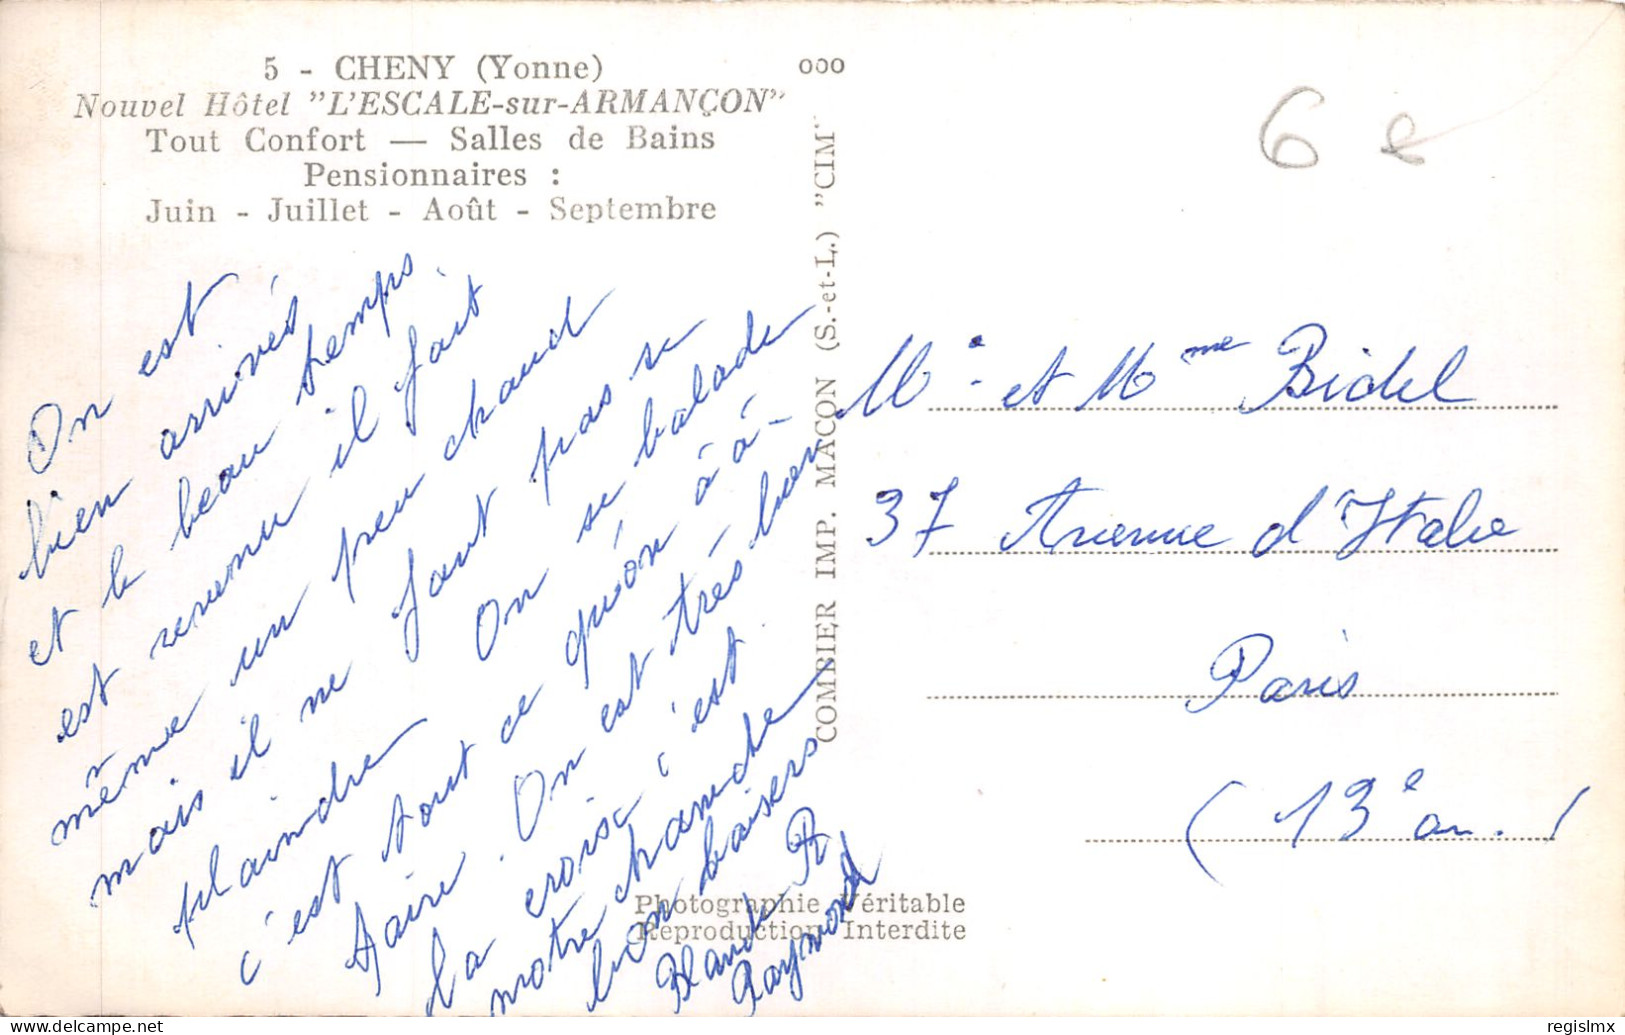 5 - CHENY (Yonne)
Nouvel Hôtel "L'ESCALE-sur-ARMANÇON"
Tout Confort — Salles de Bains
Pensionnaires :
Juin - Juillet - Août - Septembre
000
6 e
On est
bien arrivés
et le beau temps
est revenu il fait
même un peu chaud
mais il ne faut pas se
plaindre On se balade
c'est tout ce qu'on à à
faire. On est très bien
la croix c'est
notre chambre
bon baisers
Blande R
Raymond
COMBIER IMP. MACON (S.-et-L.) "CIM"
Mr. et Mme Bidel
37 Avenue d'Italie
Paris
(13e arr.)
Photographie Véritable
Reproduction Interdite
delcampe.net
regislmx